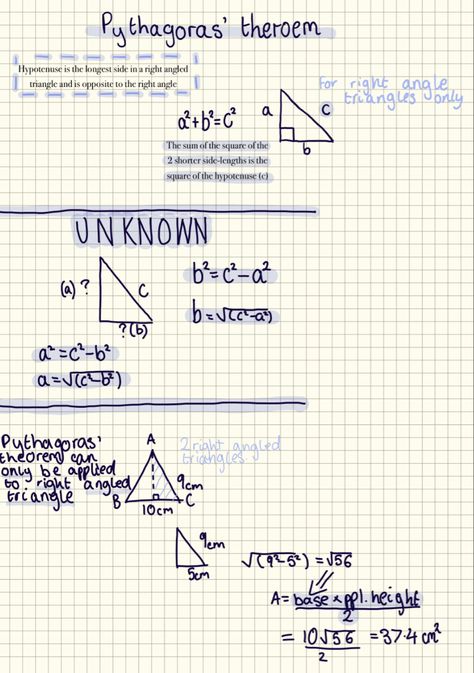 Pythagoras' theroem
Hypotenuse is the longest side in a right angled
triangle and is opposite to the right angle
For right angle
triangles only
a²+b²=c²
a
c
b
The sum of the square of the
2 shorter side-lengths is the
square of the hypotenuse (c)
UNKNOWN
(a) ?
c
?(b)
b²=c²-a²
b=√(c²-a²)
a²=c²-b²
a=√(c²-b²)
Pythagoras'
theorem can
only be applied
to right angled
triangle
A
B
C
9cm
10cm
2 right angled
triangles
9cm
5cm
√(9²-5²)=√56
A= base × ppl. height
2
= 10√56 =37.4 cm²
2